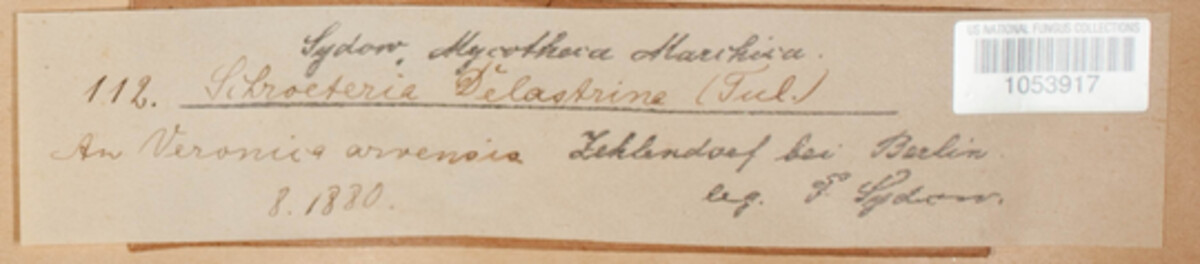 Sydow, Mycotheca Marchica.
US NATIONAL FUNGUS COLLECTIONS
1053917
112. Schroeteria Delastrina (Tul.)
An Veronica arvensis Zehlendorf bei Berlin.
8. 1880. leg. P. Sydow.